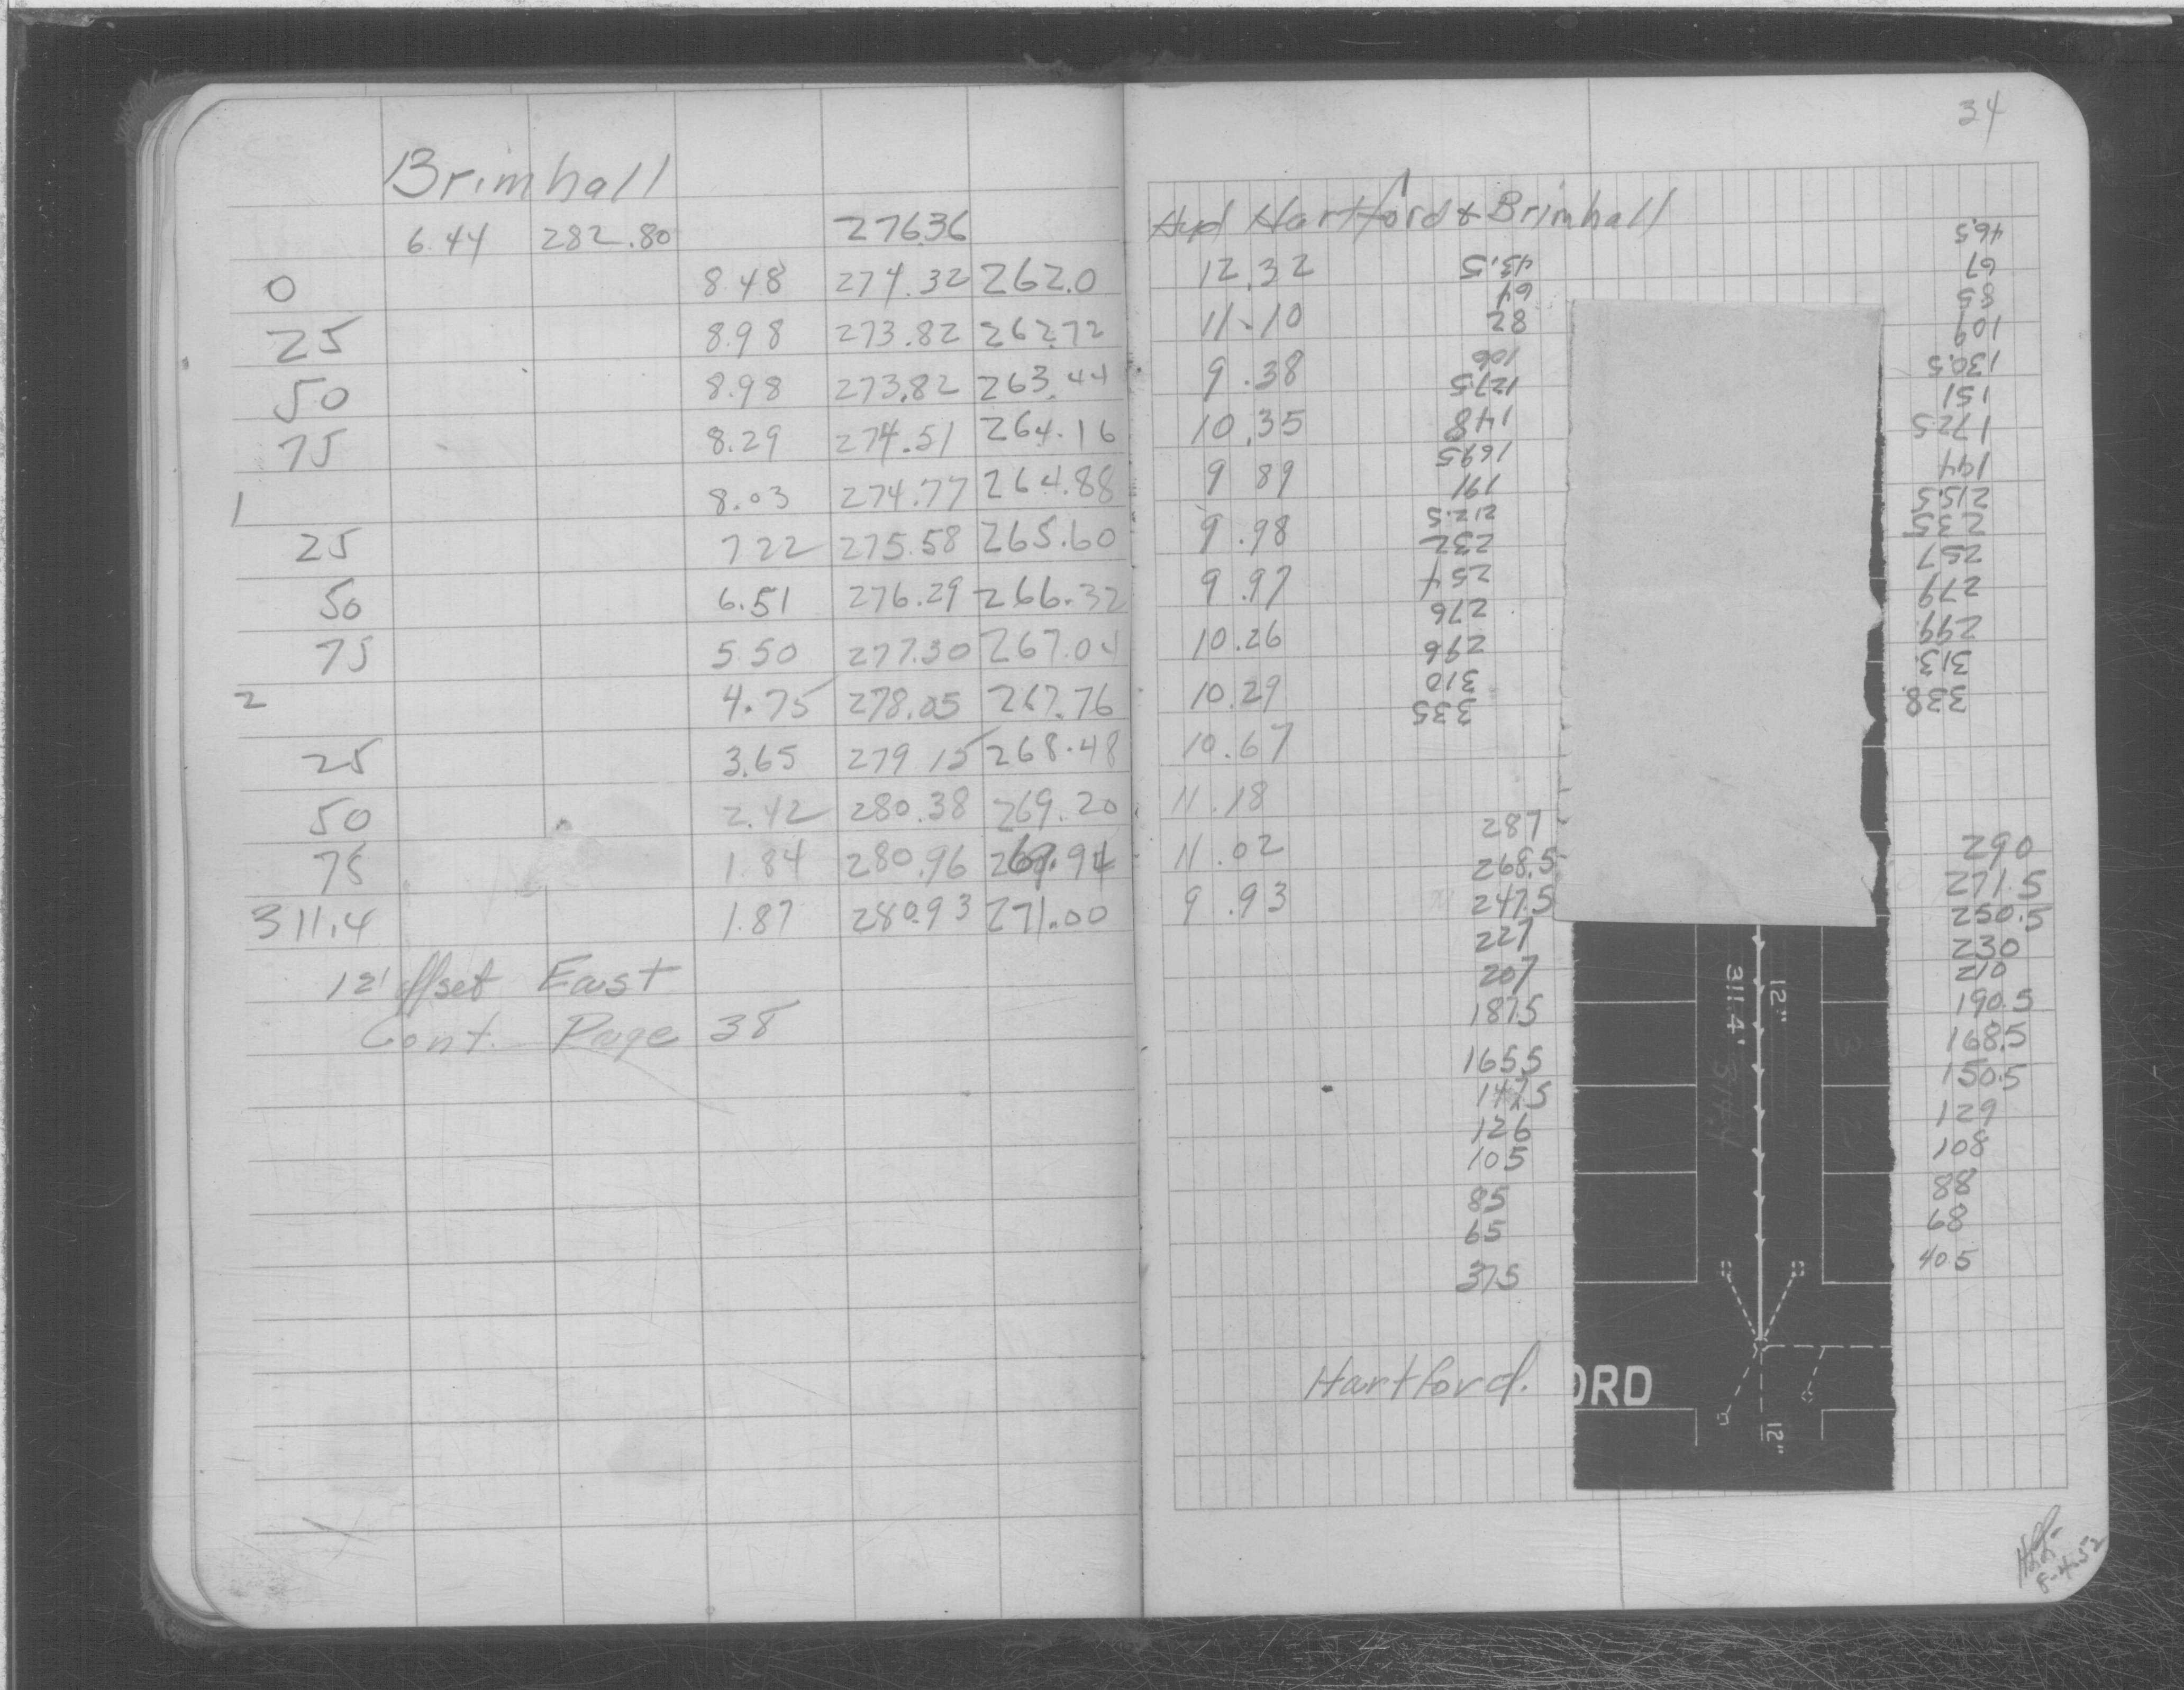 34
Brimhall
6.44 282.80 276.36 Hyd Hartford & Brimhall
0 8.48 274.32 262.0 12.32
25 8.98 273.82 262.72 11.10
50 8.98 273.82 263.44 9.38
75 8.29 274.51 264.16 10.35
1 8.03 274.77 264.88 9 89
25 7 22 275.58 265.60 9.98
50 6.51 276.29 266.32 9.97
75 5 50 277.30 267.04 10.26
2 4.75 278.05 267.76 10.29
25 3.65 279 15 268.48 10.67
50 2.42 280.38 269.20 11.18
75 1.84 280.96 269.94 11.02
311.4 1.87 280.93 271.00 9.93
12' offset East
Cont. Page 38
43.5
64
82
106
127.5
148
169.5
191
212.5
232
254
276
296
310
335
46.5
67
85
109
130.5
151
172.5
194
215.5
235
257
279
299
313
338
287
268.5
247.5
227
207
187.5
165.5
147.5
126
105
85
65
37.5
290
271.5
250.5
230
210
190.5
168.5
150.5
129
108
88
68
40.5
12"
311.4'
Hartford.
ORD
12"
8-4-52